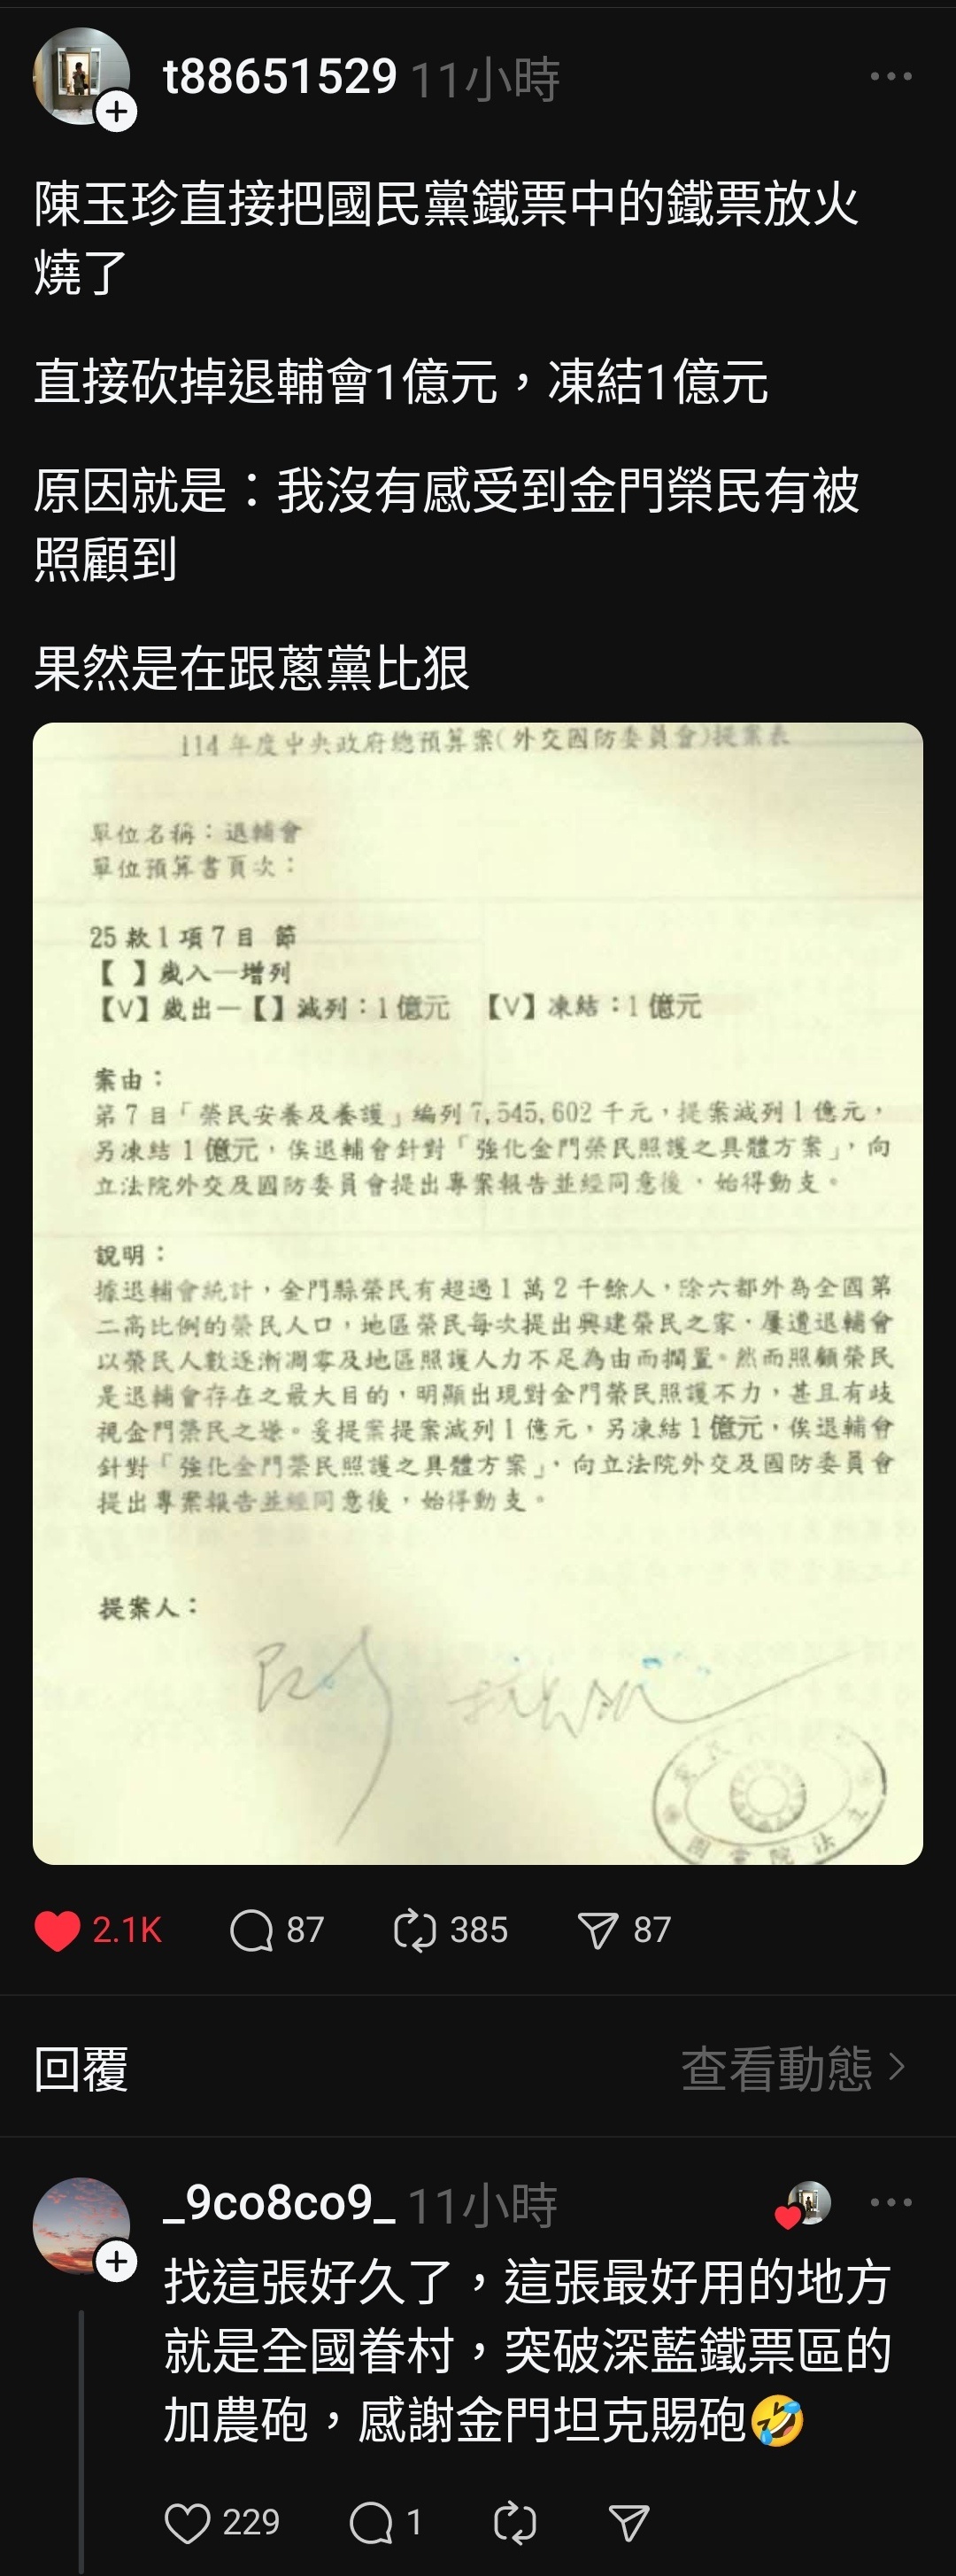 t88651529 11小時
陳玉珍直接把國民黨鐵票中的鐵票放火
燒了
直接砍掉退輔會1億元，凍結1億元
原因就是：我沒有感受到金門榮民有被
照顧到
果然是在跟蔥黨比狠
114年度中央政府總預算案(外交國防委員會)提案表
單位名稱：退輔會
單位預算書頁次：
25款1項7目 節
【 】歲入—增列
【V】歲出—【】減列：1億元 【V】凍結：1億元
案由：
第7目「榮民安養及養護」編列7,545,602千元，提案減列1億元，
另凍結1億元，俟退輔會針對「強化金門榮民照護之具體方案」，向
立法院外交及國防委員會提出專案報告並經同意後，始得動支。
說明：
據退輔會統計，金門縣榮民有超過1萬2千餘人，除六都外為全國第
二高比例的榮民人口，地區榮民每次提出興建榮民之家，屢遭退輔會
以榮民人數逐漸凋零及地區照護人力不足為由而擱置。然而照顧榮民
是退輔會存在之最大目的，明顯出現對金門榮民照護不力，甚且有歧
視金門榮民之嫌。爰提案提案減列1億元，另凍結1億元，俟退輔會
針對「強化金門榮民照護之具體方案」，向立法院外交及國防委員會
提出專案報告並經同意後，始得動支。
提案人：
立法院黨團
2.1K 87 385 87
回覆 查看動態
_9co8co9_ 11小時
找這張好久了，這張最好用的地方
就是全國眷村，突破深藍鐵票區的
加農砲，感謝金門坦克賜砲🤣
229 1